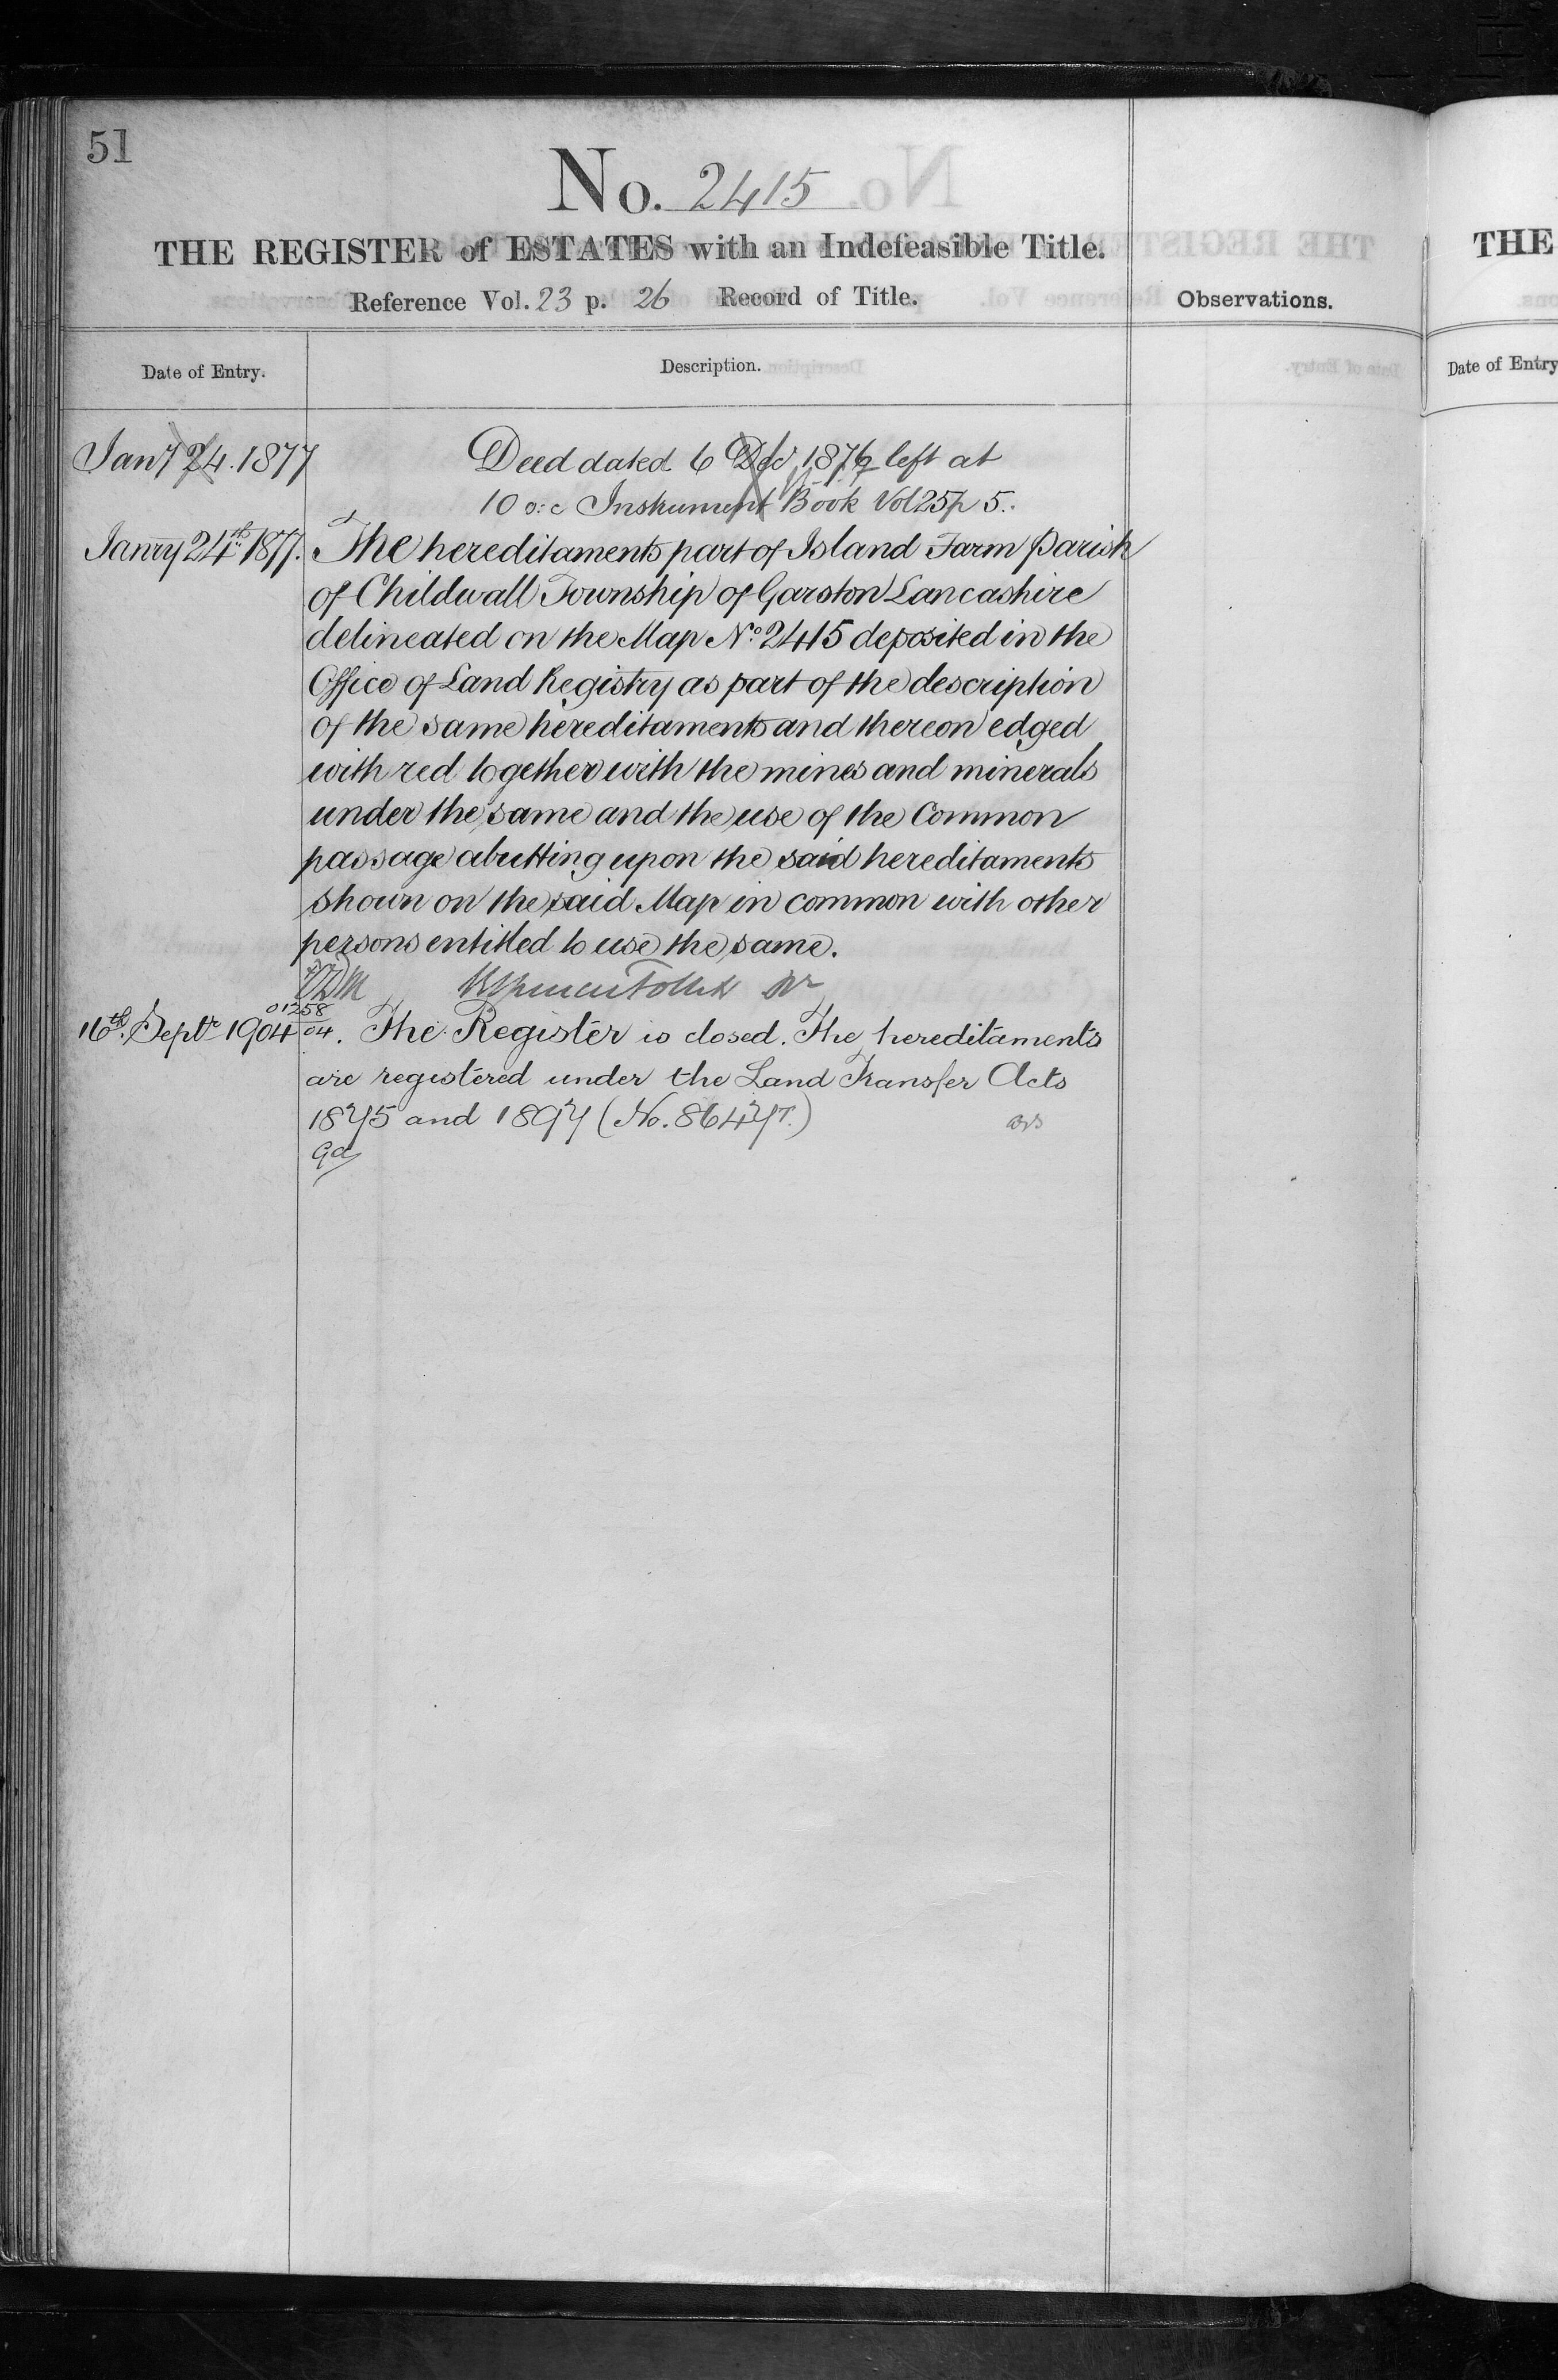 51
No. 2415
THE REGISTER of ESTATES with an Indefeasible Title.
Reference Vol. 23 p. 26 Record of Title.
Observations.
Date of Entry.
Description.
Jany 24. 1877
Deed dated 6 Dec 1876 left at
10 o:c Instrument Book Vol 25 p 5.
Janry 24th 1877.
The hereditaments part of Island Farm Parish
of Childwall Township of Garston Lancashire
delineated on the Map No. 2415 deposited in the
Office of Land Registry as part of the description
of the same hereditaments and thereon edged
with red together with the mines and minerals
under the same and the use of the Common
passage abutting upon the said hereditaments
shown on the said Map in common with other
persons entitled to use the same.
16th Septr 1904
01258
04. The Register is closed. The hereditaments
are registered under the Land Transfer Acts
1875 and 1897 (No. 8647.)
THE
Date of Entry